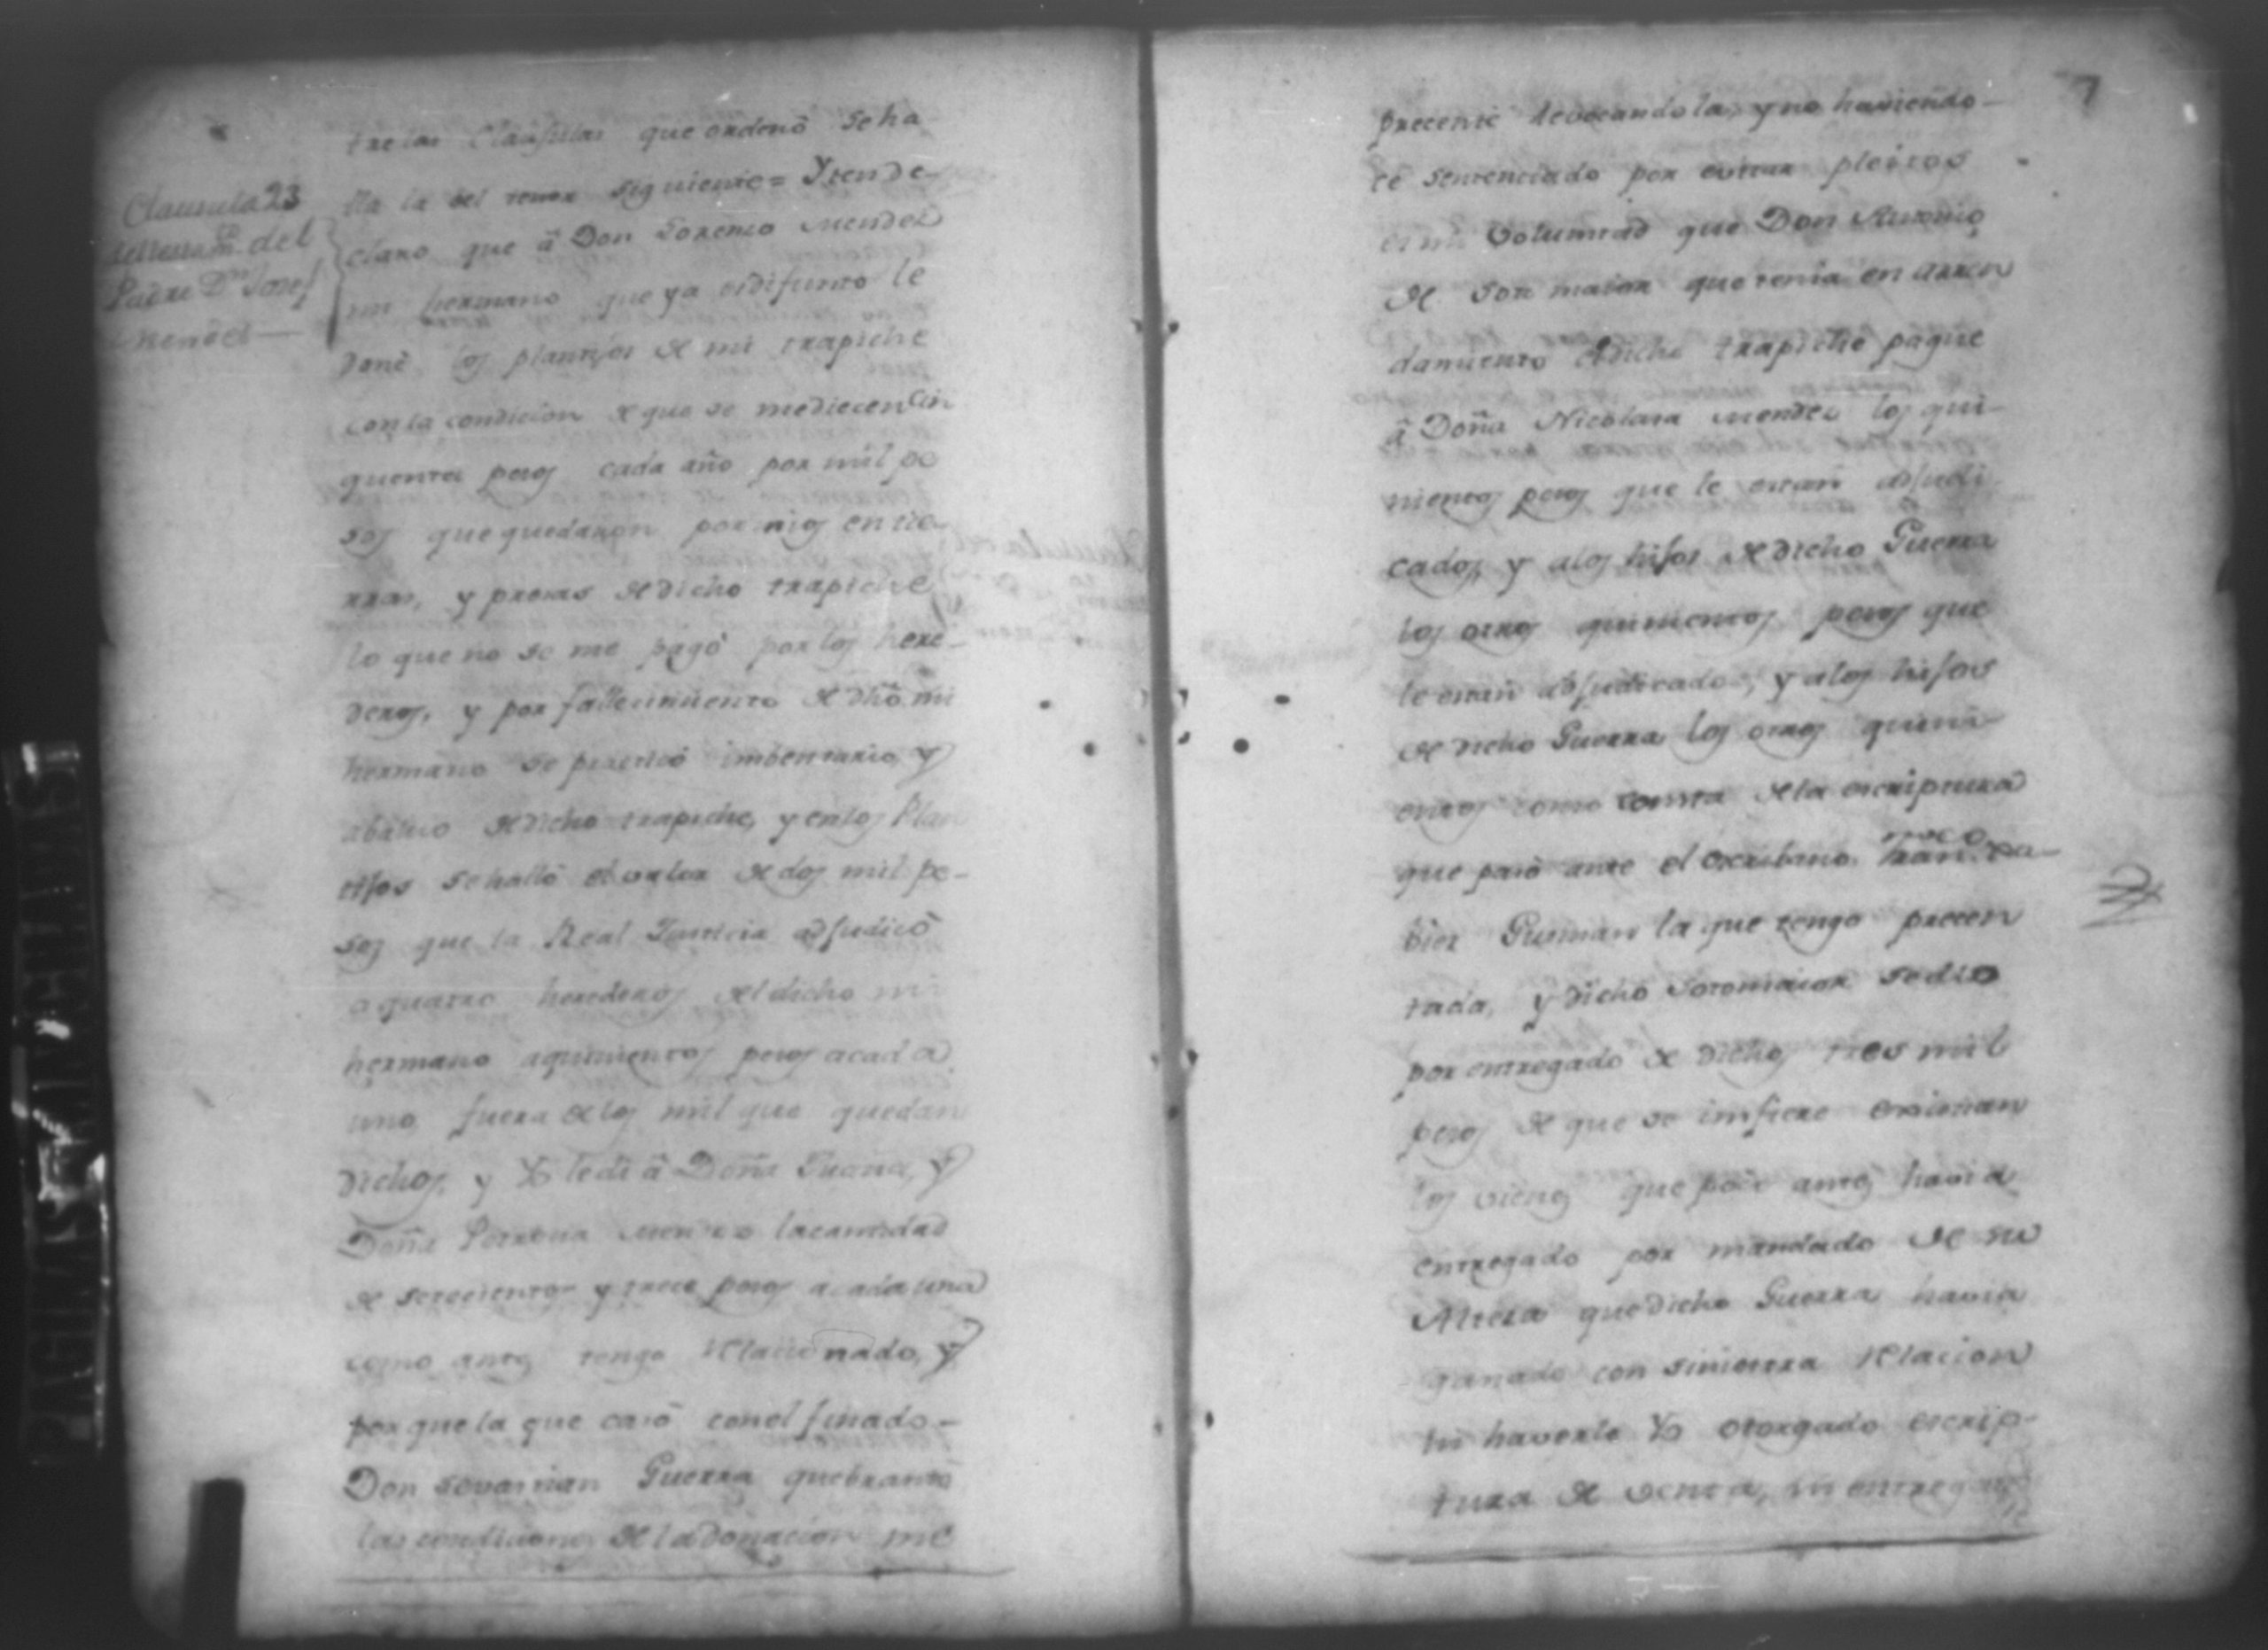 Clausula 23
del testam.to del
Padre Dn Josef
Mendes
tre las Clausulas que ordenò se ha
lla la del tenor siguiente = Yten de-
claro que â Don Lorenzo Mendes
mi hermano que ya es difunto le
donè los plantijos de mi trapiche
con la condicion de que se me diecen cin
quenta pesos cada año por mil pe
sos que quedaron por mios en tie-
rras, y presas de dicho trapiche
lo que no se me pagò por los here-
deros, y por fallecimiento de dho mi
hermano se practicò imbentario, y
abaluo de dicho trapiche, y en los Plan
tijos se hallò el valor de dos mil pe-
sos que la Real Justicia adjudicò
a quatro herederos del dicho mi
hermano a quinientos pesos a cada
uno, fuera de los mil que quedan
dichos, y Yo le di â Doña Juana, y
Doña Petrona Mendes la cantidad
de setecientos y trece pesos a cada una
como antes tengo relacionado, y
por que la que casò con el finado-
Don Sevastian Guerra quebrantò
las condiciones de la donacion me
7
precente revocandola, y no haviendo-
ce sentenciado por evitar pleitos
es mi voluntad que Don Antonio
de Soto maior que tenia en arren
damiento dicho trapiche pague
â Doña Nicolasa Mendes los qui-
nientos pesos que le estan adjudi
cados, y a los hijos de dicho Guerra
los otros quinientos pesos que
le estan adjudicado, y a los hijos
de dicho Guerra los otros quini
entos como consta de la escriptura
que pasò ante el escribano
Gusman la que tengo precen
tada, y dicho Sotomaior se dio
por entregado de dichos tres mil
pesos de que se imfiere existian
los vienes que antes havia
entregado por mandado de su
Alteza que dicho Guerra havia
ganado con siniestra relacion
sin haverle Yo otorgado escrip-
tura de venta, ni entregar